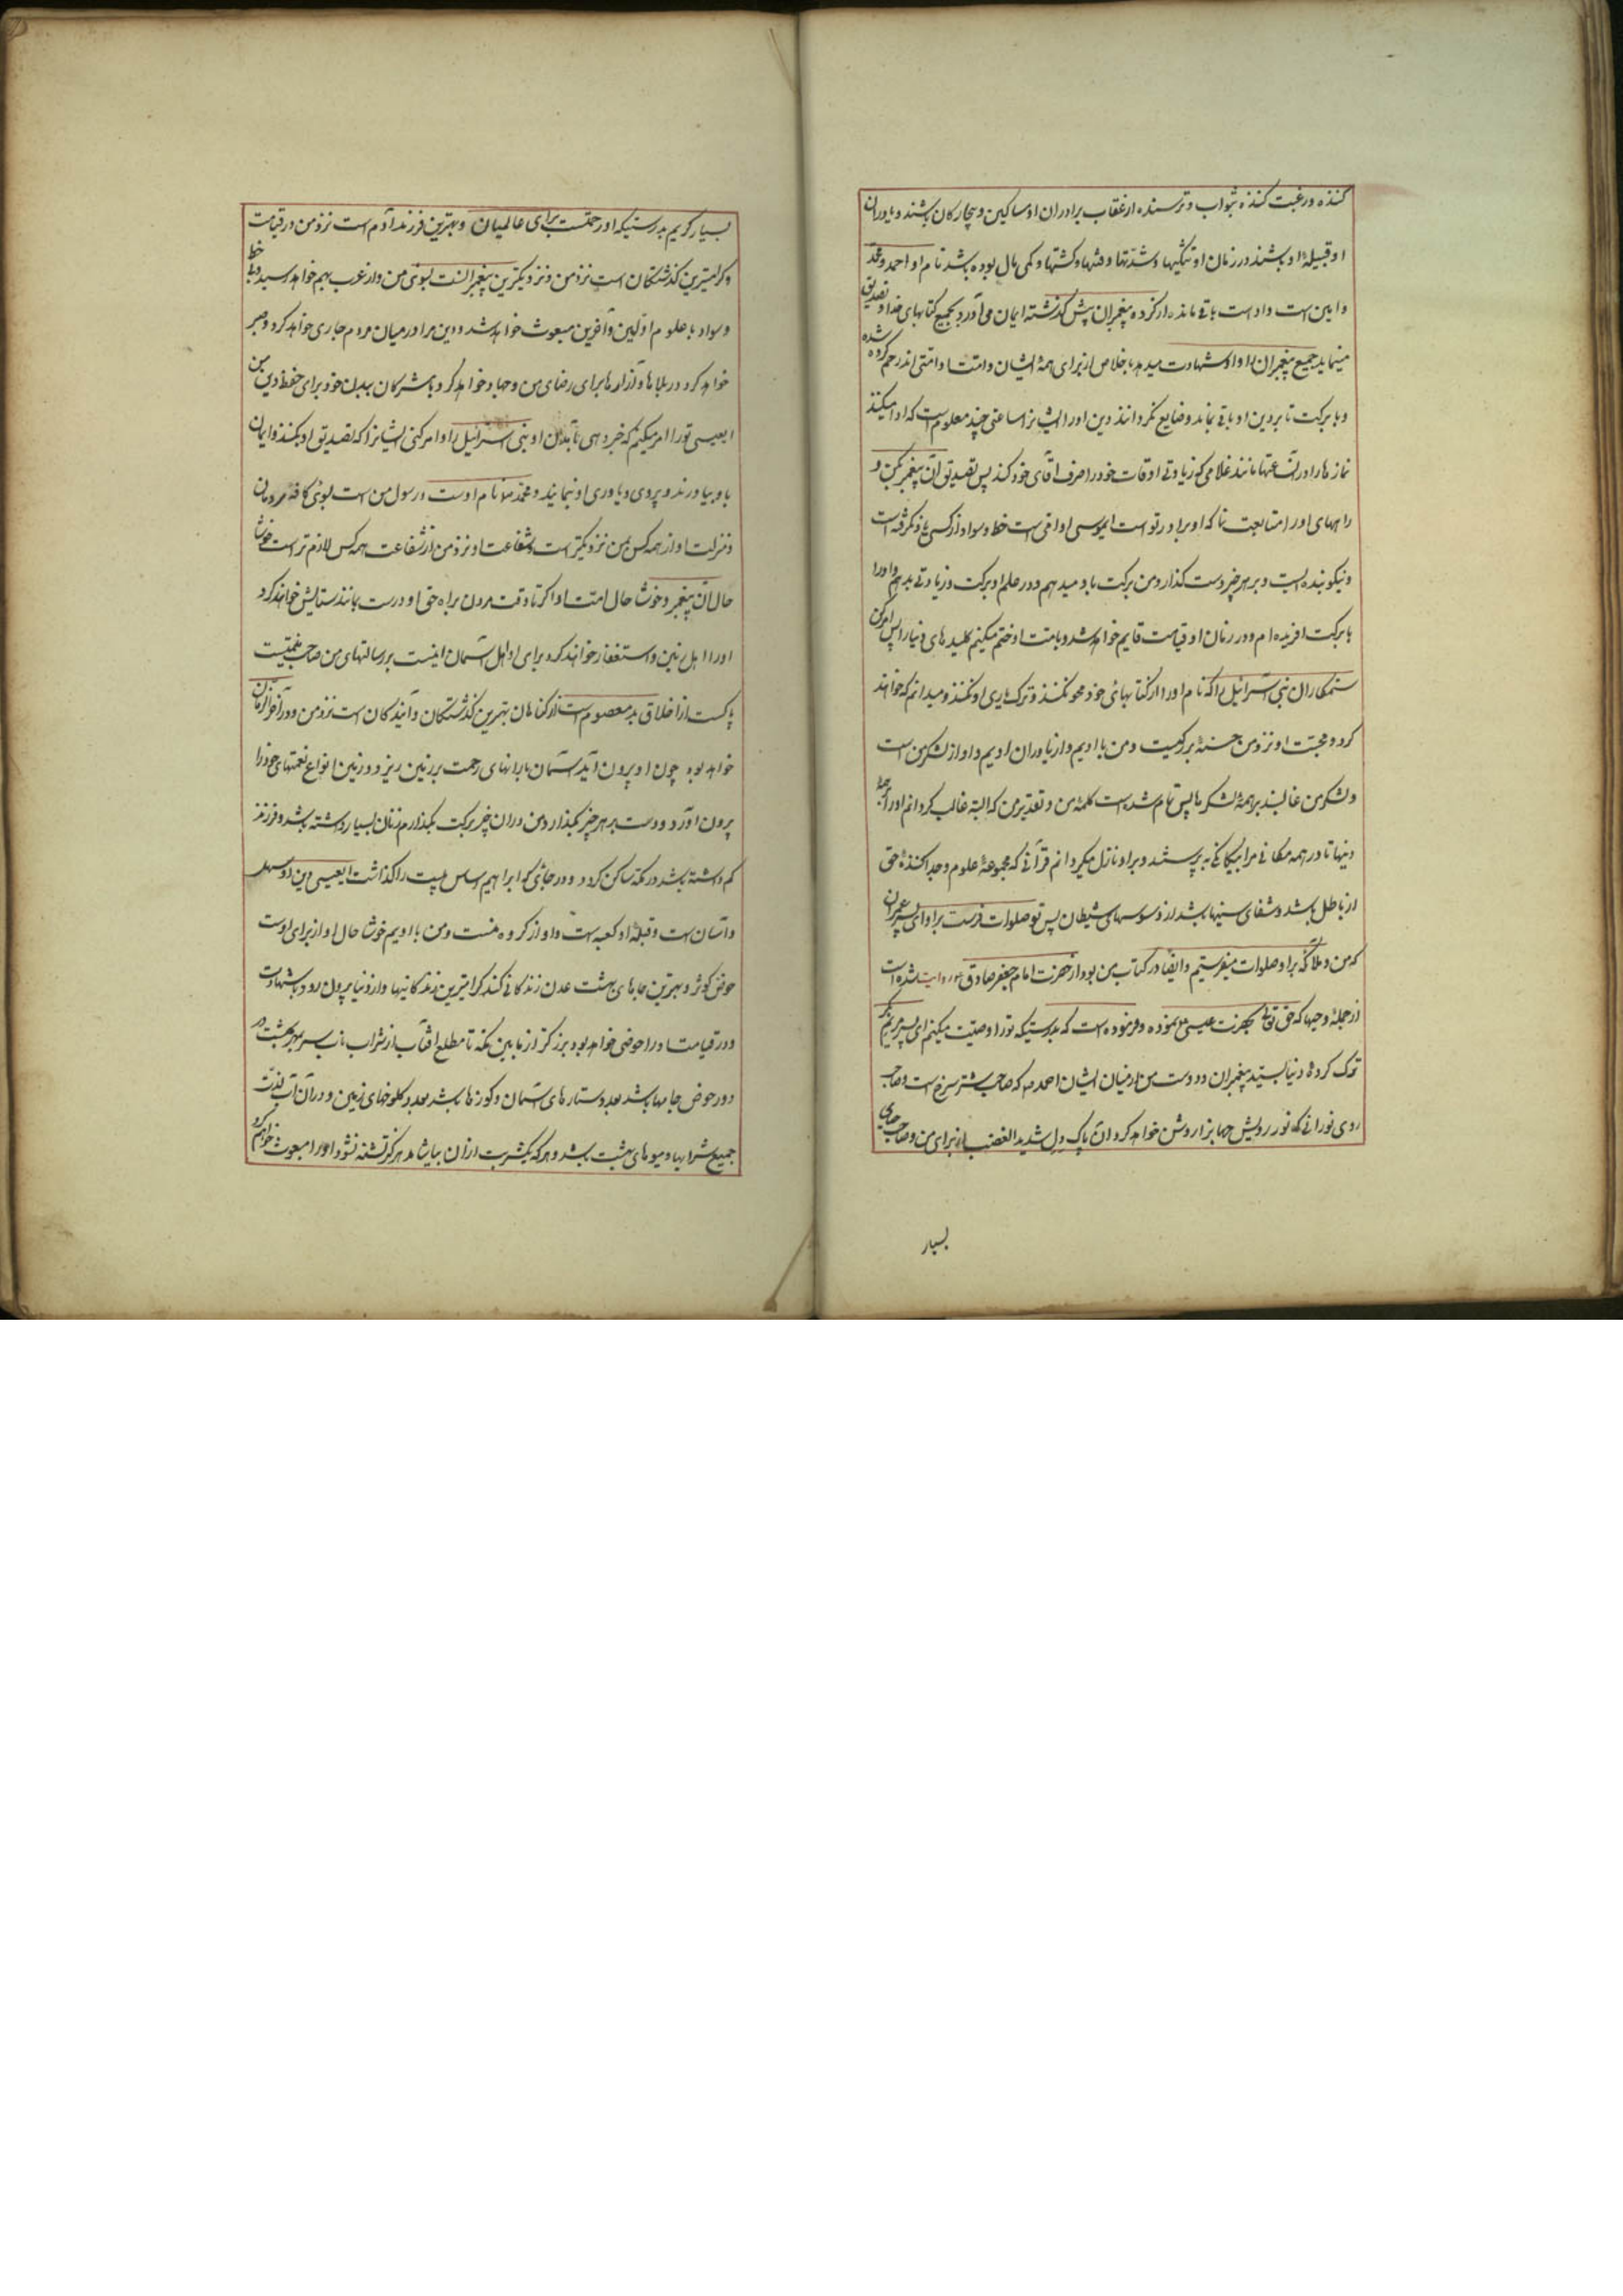 کننده و رغبت کننده بثواب و ترسنده از عقاب برادران او مساکین و بیچارکان باشند و یاوران
او قبیلهٔ او باشند در زمان او تنکیها و شدتها و فتنها و کشتنها و کمی مال بوده باشد نام او احمد و محمد
و امین است و او است باقی مانده از کروه پیغمبران پیش کذشته ایمان می آورد بجمیع کتابهای خدا و تصدیق
مینماید جمیع پیغمبران را و از شهادت میدهد باخلاص از برای همهٔ ایشان و امت او امتی اند رحم کرده شده
و با برکت تا بر دین او باقی بمانند و ضایع نکردانند دین او را ایشانرا ساعتی چند معلوم است که ادا میکنند
نمازها را در آن ساعتها مانند غلامی که زیادتی اوقات خود را صرف آقای خود کند پس تصدیق آن پیغمبر بکن و
راههای او را متابعت نما که او برادر تو است ایموسی او امی است خط و سواد از کسی یاد نکرفته است
و نیکو بنده ایست و بر هر چیز دست کذارد من برکت باو میدهم و در علم او برکت و زیادتی بدهم و او را
با برکت آفریده ام و در زمان او قیامت قایم خواهد شد و بامت او ختم میکنم کلیدهای دنیا را پس امر کن
ستمکاران بنی اسرائیل را که نام او را از کتابهای خود محو نکنند و ترک یاری او نکنند و میدانم که خواهند
کرد و محبت او نزد من حسنهٔ بزرکیست و من با اویم و از یاوران اویم و او از لشکر من است
و لشکر من غالبند بر همهٔ لشکرها پس تمام شده است کلمهٔ من و تقدیر من که البته غالب کردانم او را بر همهٔ
دینها تا در همه مکانی مرا بیکانکی به پرستند و بر او نازل میکردانم قرآنی که مجموعهٔ علوم و جدا کنندهٔ حق
از باطل باشد و شفای سینها باشد از وسوسهای شیطان پس تو صلوات فرست بر او ای پسر عمران
که من و ملائکه بر او صلوات میفرستیم و ایضا در کتاب من بود از حضرت امام جعفر صادق ع روایت شده است
از جملهٔ وحیها که حق تعالی بحضرت عیسی ع نموده و فرموده است که بدرستیکه تو را وصیت میکنم ای پسر مریم بکر
ترک کردهٔ دنیا بسید پیغمبران و دوست من از میان ایشان احمد ص که صاحب شتر سرخ است و صاحب
روی نورانی که نور رویش جهانرا روشن خواهد کرد و آن پاک دل شدید الغضب از برای من و صاحب حیای
بسیار
بسیار کریم بدرستیکه او رحمتست برای عالمیان و بهترین فرزند آدم است نزد من در قیامت
و کرامیترین کذشتکان است نزد من و نزدیکترین پیغمبرانست بسوی من و از عرب بهم خواهد رسید و با خط
و سواد با علوم اولین و آخرین مبعوث خواهد شد و دین مرا در میان مردم جاری خواهد کرد و صبر
خواهد کرد در بلاها و آزارها برای رضای من و جهاد خواهد کرد با مشرکان ببدن خود برای حفظ دین من
ایعیسی تو را امر میکنم که خبر دهی بآمدن او بنی اسرائیل را و امر کنی ایشانرا که تصدیق او بکنند و ایمان
باو بیاورند و پیروی و یاوری او نمایند و محمد ص نام اوست و رسول من است بسوی کافه مردمان
و منزلت او از همه کس بمن نزدیکتر است و شفاعت او نزد من از شفاعت همه کس لازم تر است خوشا
حال آن پیغمبر و خوشا حال امت او اکر تا وقت مردن براه حق او درست بمانند ستایش خواهند کرد
او را اهل زمین و استغفار خواهند کرد برای او اهل آسمان امینست بر رسالتهای من صاحب میمنتیست
پاکست از اخلاق بد معصوم است از کناهان بهترین کذشتکان و آیندکان است نزد من و در آخر الزمان
خواهد بود چون او بیرون آید آسمان بارانهای رحمت بر زمین ریزد و زمین انواع نعمتهای خود را
بیرون آورد و دست بر هر چیز بکذارد من در آن چیز برکت بکذارم زنان بسیار داشته باشد و فرزند
کم داشته باشد در مکه ساکن کردد و در جائی که ابراهیم اساس بیت را کذاشت ایعیسی دین او سهل
و آسان است و قبلهٔ او کعبه است و او از کروه منست و من با اویم خوشا حال او از برای اوست
حوض کوثر و بهترین جاهای بهشت عدن زندکانی کند کرامیترین زندکانیها و از دنیا بیرون رود با شهادت
و در قیامت او را حوضی خواهد بود بزرکتر از مابین مکه تا مطلع آفتاب از شراب ناب سر بمهر بهشت و
در حوض جامها باشد بعدد ستارهای آسمان و کوزها باشد بعدد کلوخهای زمین و در آن آب لذت
جمیع شرابها و میوهای بهشت باشد و هر که یکشربت از آن بیاشامد هرکز تشنه نشود او را مبعوث خواهم کرد